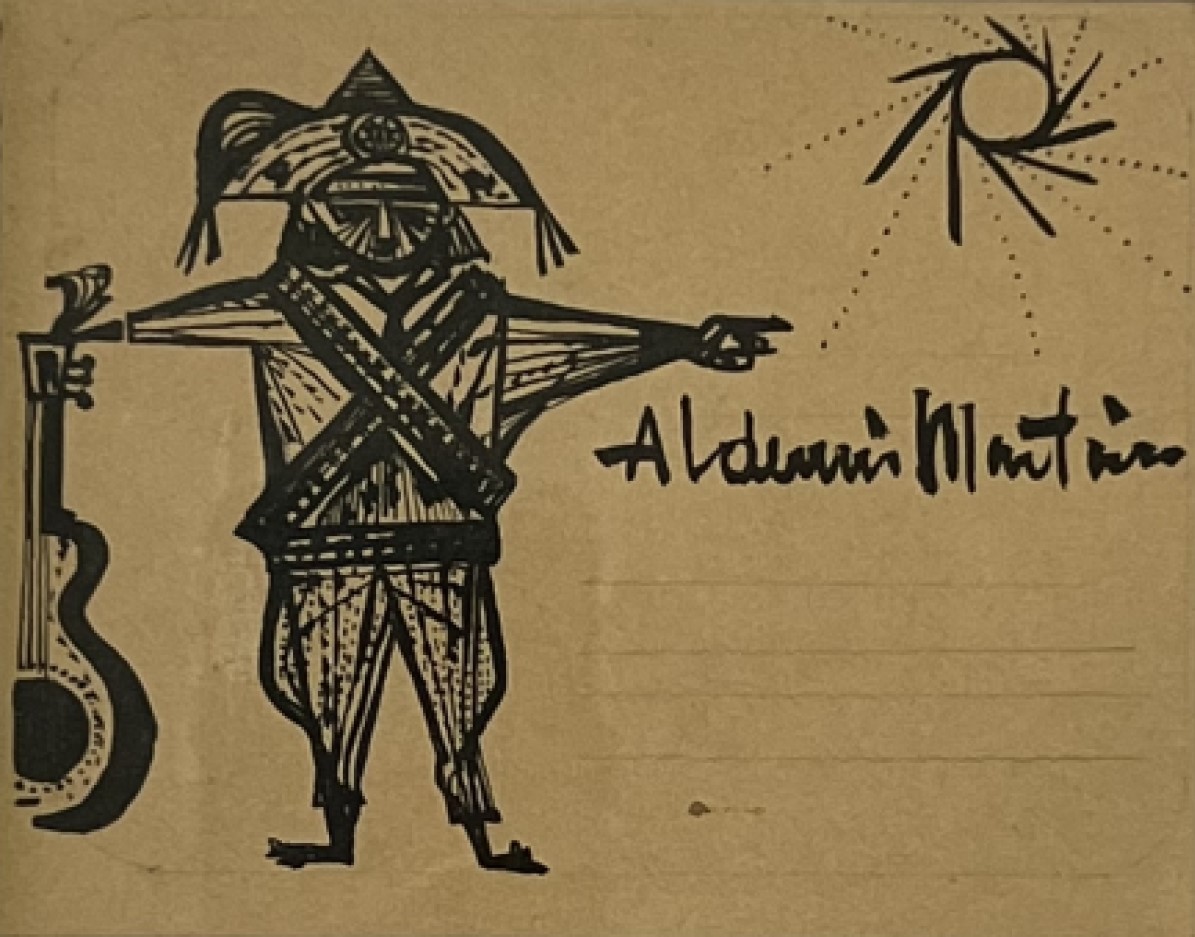 Aldemir Martins